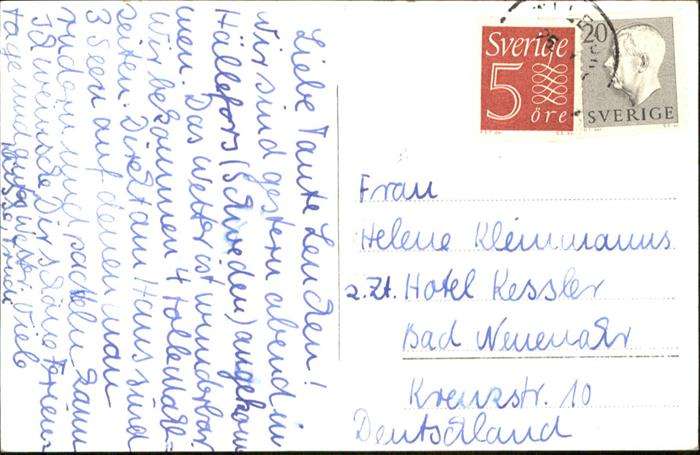 Liebe Tante Lenchen!
Wir sind gestern abend in
Hällefors (Schweden) angekom
men. Das Wetter ist wunderbar.
Wir bekommen 4 tolle Mahl-
zeiten. Direkt am Haus sind
3 Seen auf denen man
rudern und paddeln kann
Ich wünsche Dir schöne Ferien-
tage und gutes Wetter. Viele
Grüsse,
Sverige
5
öre
20
SVERIGE
Frau
Helene Kleinmanns
z.Zt. Hotel Kessler
Bad Neuenahr
Kreuzstr. 10
Deutschland